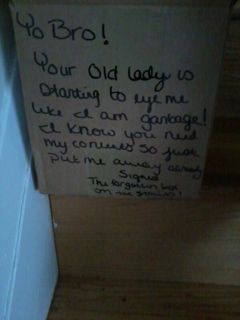 Yo Bro!
Your Old lady is
starting to eye me
like I am garbage!
I know you need
my contents so just
put me away already
Signed
The forgotten box
on the stairs!